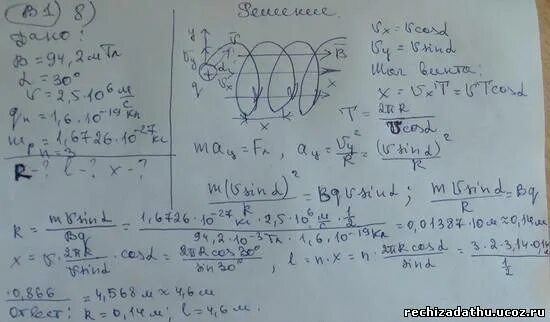 В1) 8) Решение.
Дано:
B = 94,2 мТл
α = 30°
v = 2,5·10⁶ м/с
qₚ = 1,6·10⁻¹⁹ Кл
mₚ = 1,6726·10⁻²⁷ кг
n = 3
R - ? l - ? x - ?
y v B
v_y α
q v_x
x x
v_x = v cosα
v_y = v sinα
Шаг винта:
x = v_x T = v T cosα
T = 2πR / v cosα
m a_y = Fл, a_y = v_y² / R = (v sinα)² / R
m(v sinα)² / R = Bqv sinα; m v sinα / R = Bq
R = m v sinα / Bq = 1,6726·10⁻²⁷ кг · 2,5·10⁶ м/с · 1/2 / 94,2·10⁻³ Тл · 1,6·10⁻¹⁹ Кл = 0,01387·10 м ≈ 0,14 м
x = v · 2πR / v sinα · cosα = 2πR cos30° / sin30°, l = n·x = n · 2πR cosα / sinα = 3·2·3,14·0,14 / 1/2
·0,866 = 4,568 м ≈ 4,6 м
Ответ: R = 0,14 м; l = 4,6 м.
rechizadathu.ucoz.ru